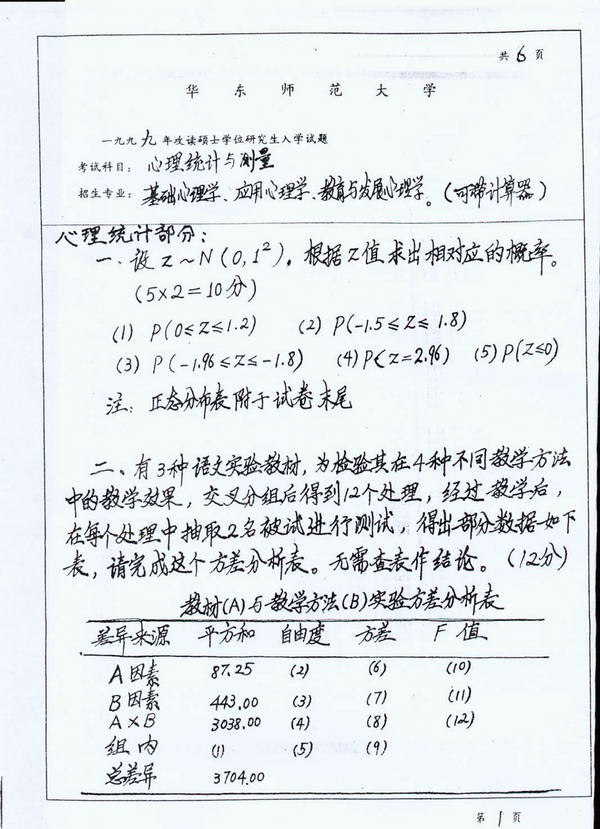 共6页
华东师范大学
一九九九年攻读硕士学位研究生入学试题
考试科目：心理统计与测量
招生专业：基础心理学、应用心理学、教育与发展心理学。（可带计算器）
心理统计部分：
一、设 Z～N（0,1²），根据Z值求出相对应的概率。
（5×2=10分）
(1) P(0≤Z≤1.2) (2) P(-1.5≤Z≤1.8)
(3) P(-1.96≤Z≤-1.8) (4) P(Z=2.96) (5) P(Z≤0)
注：正态分布表附于试卷末尾
二、有3种语文实验教材，为检验其在4种不同教学方法
中的教学效果，交叉分组后得到12个处理，经过教学后，
在每个处理中抽取2名被试进行测试，得出部分数据如下
表，请完成这个方差分析表。无需查表作结论。（12分）
教材(A)与教学方法(B)实验方差分析表
差异来源 平方和 自由度 方差 F值
A因素 87.25 (2) (6) (10)
B因素 443.00 (3) (7) (11)
A×B 3038.00 (4) (8) (12)
组内 (1) (5) (9)
总差异 3704.00
第1页